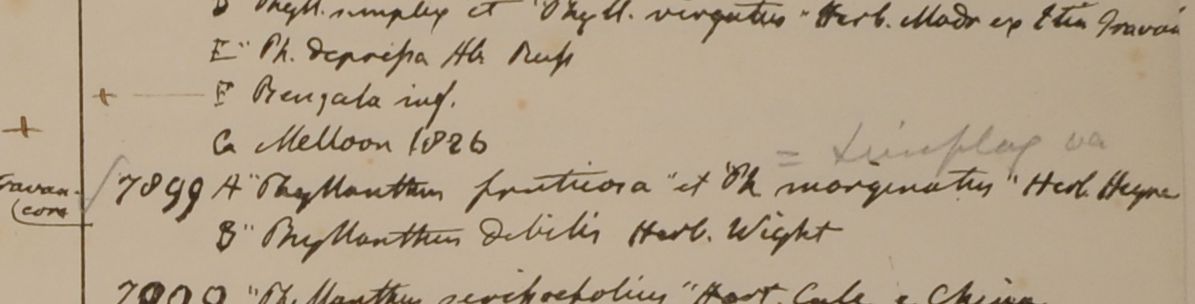 B "Phyll. simplex et "Phyll. virgatus" Herb. Madr ex Itin
E "Ph. depressa Hb Russ
F Bengala inf.
G Melloon 1826
= simplex va
Travan-
core
7899 A "Phyllanthus fruticosa" et "Ph marginatus" Herb. Heyne
B "Phyllanthus debilis Herb. Wight
"Phyllanthus Hort. Calc. e China